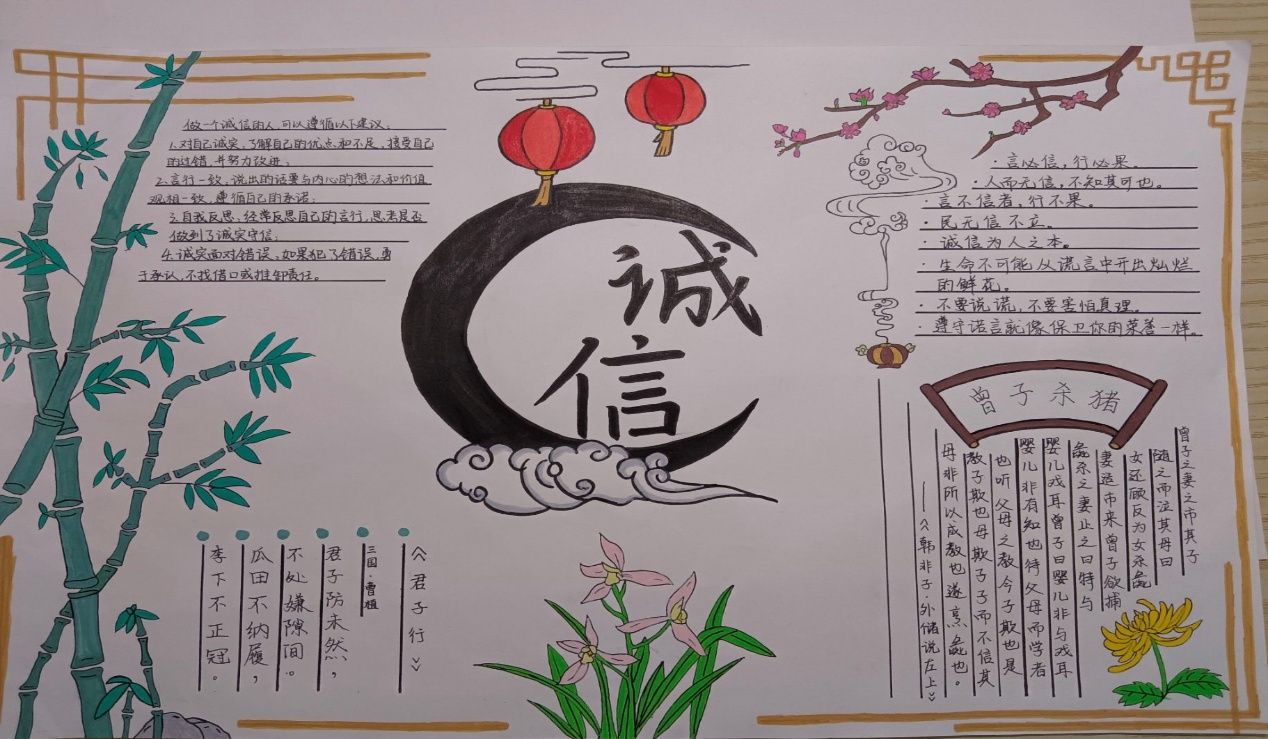 做一个诚信的人,可以遵循以下建议:
1.对自己诚实,了解自己的优点和不足,接受自己
的过错,并努力改进;
2.言行一致,说出的话要与内心的想法和价值
观相一致,遵循自己的承诺;
3.自我反思,经常反思自己的言行,思考是否
做到了诚实守信;
4.诚实面对错误,如果犯了错误,勇
于承认,不找借口或推卸责任。
诚
信
·言必信,行必果。
·人而无信,不知其可也。
·言不信者,行不果。
·民无信不立。
·诚信为人之本。
·生命不可能从谎言中开出灿烂
的鲜花。
·不要说谎,不要害怕真理。
·遵守诺言就像保卫你的荣誉一样。
《君子行》
三国·曹植
君子防未然,
不处嫌隙间。
瓜田不纳履,
李下不正冠。
曾子杀猪
曾子之妻之市其子
随之而泣其母曰
女还顾反为女杀彘
妻适市来曾子欲捕
彘杀之妻止之曰特与
婴儿戏耳曾子曰婴儿非与戏耳
婴儿非有知也待父母而学者
也听父母之教今子欺也是
教子欺也母欺子子而不信其
母非所以成教也遂烹彘也。
——《韩非子·外储说左上》